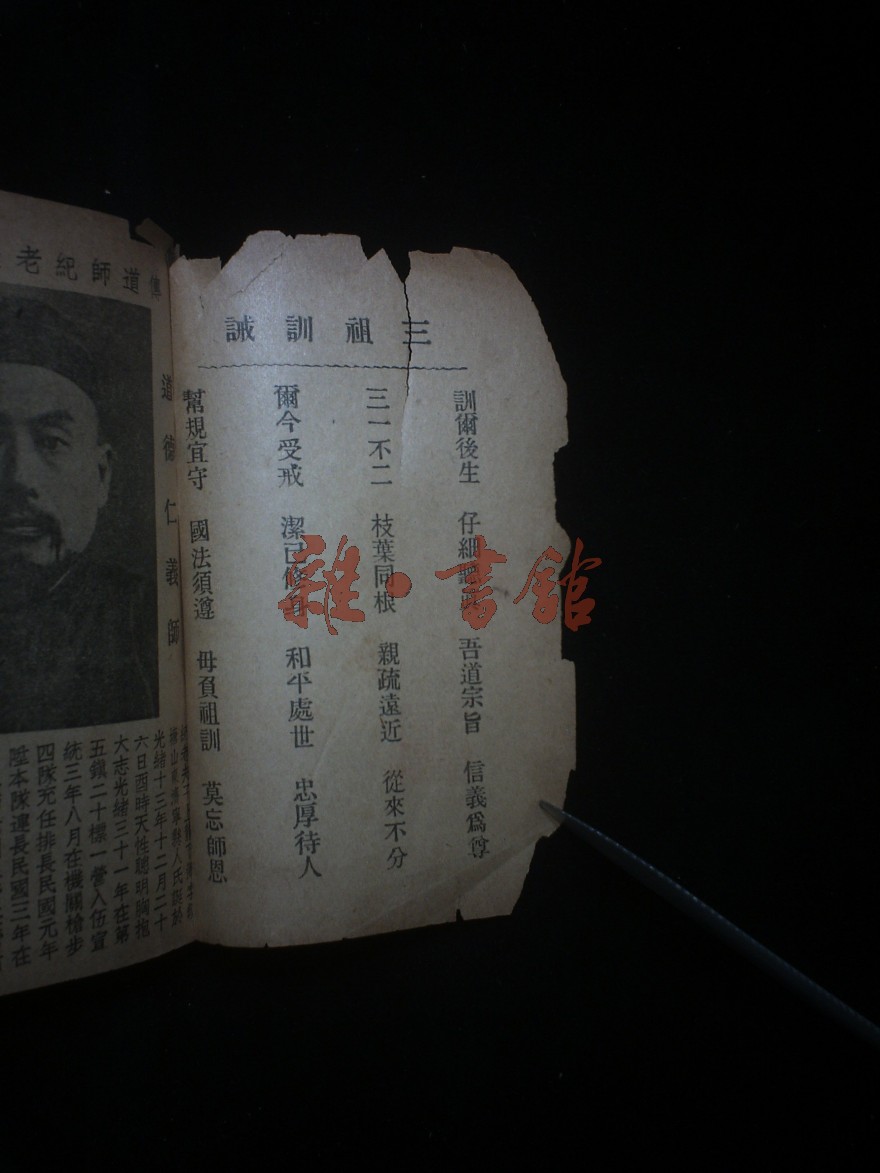 三祖訓誡
訓爾後生 仔細聽 吾道宗旨 信義爲尊
三一不二 枝葉同根 親疏遠近 從來不分
爾今受戒 潔已修身 和平處世 忠厚待人
幫規宜守 國法須遵 毋負祖訓 莫忘師恩
傳道師紀老
道德仁義師
山東濟寧縣人氏誕於
光緒十三年十二月二十
六日酉時天性聰明胸抱
大志光緒三十一年在第
五鎮二十標一營入伍宣
統三年八月在機關槍步
四隊充任排長民國元年
陞本隊連長民國三年在
雜·書館